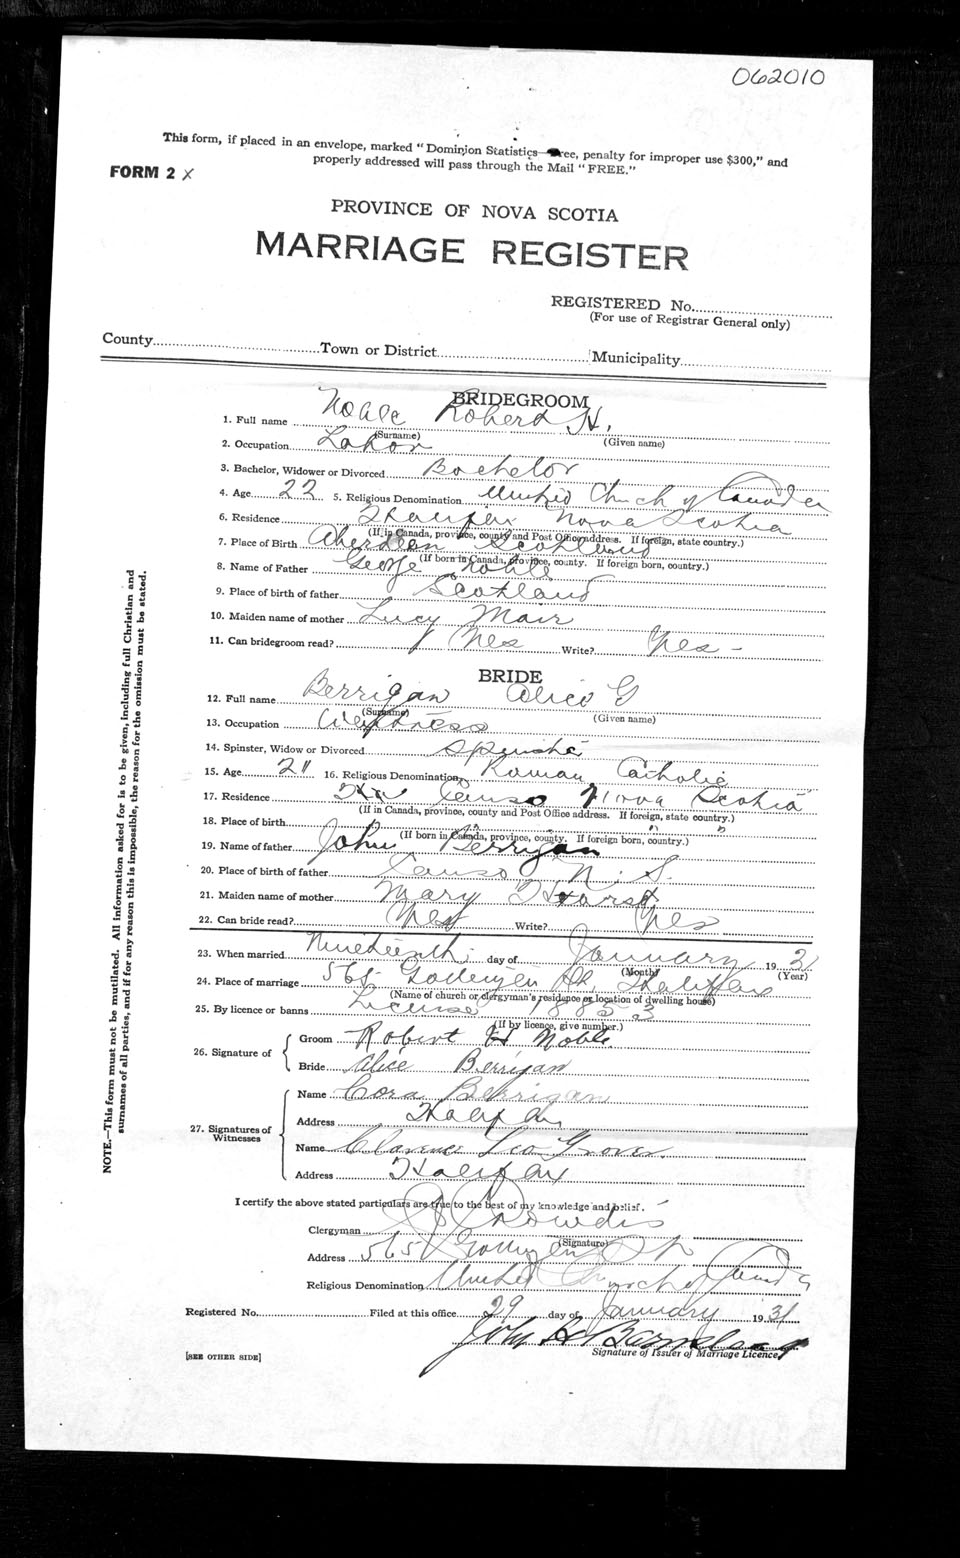 062010
This form, if placed in an envelope, marked "Dominion Statistics—Free, penalty for improper use $300," and
properly addressed will pass through the Mail "FREE."
FORM 2 X
PROVINCE OF NOVA SCOTIA
MARRIAGE REGISTER
REGISTERED No.
(For use of Registrar General only)
County Town or District Municipality
BRIDEGROOM
1. Full name Noble Robert H.
(Surname) (Given name)
2. Occupation Labor
3. Bachelor, Widower or Divorced Bachelor
4. Age 22 5. Religious Denomination United Church of Canada
6. Residence Halifax Nova Scotia
(If in Canada, province, county and Post Office address. If foreign, state country.)
7. Place of Birth Aberdeen Scotland
(If born in Canada, province, county. If foreign born, country.)
8. Name of Father George Noble
9. Place of birth of father Scotland
10. Maiden name of mother Lucy Mair
11. Can bridegroom read? Yes Write? Yes -
BRIDE
12. Full name Berrigan Alice G
(Surname) (Given name)
13. Occupation
14. Spinster, Widow or Divorced Spinster
15. Age 21 16. Religious Denomination Roman Catholic
17. Residence Canso Nova Scotia
(If in Canada, province, county and Post Office address. If foreign, state country.)
18. Place of birth " " "
(If born in Canada, province, county. If foreign born, country.)
19. Name of father John Berrigan
20. Place of birth of father Canso N. S.
21. Maiden name of mother Mary
22. Can bride read? Yes Write? Yes
23. When married Nineteenth day of January 1931
(Month) (Year)
24. Place of marriage 565 Gottingen St, Halifax
(Name of church or clergyman's residence or location of dwelling house)
25. By licence or banns License 18853
(If by licence, give number.)
26. Signature of
Groom Robert H Noble
Bride Alice Berrigan
27. Signatures of Witnesses
Name Cora Berrigan
Address Halifax
Name Clarence Leo Grover.
Address Halifax
I certify the above stated particulars are true to the best of my knowledge and belief.
Clergyman
(Signature)
Address 565 Gottingen St
Religious Denomination United Church of Canada
Registered No. Filed at this office 29 day of January 1931
John H. Barnstead
Signature of Issuer of Marriage Licence
[SEE OTHER SIDE]
NOTE.—This form must not be mutilated. All information asked for is to be given, including full Christian and
surnames of all parties, and if for any reason this is impossible, the reason for the omission must be stated.